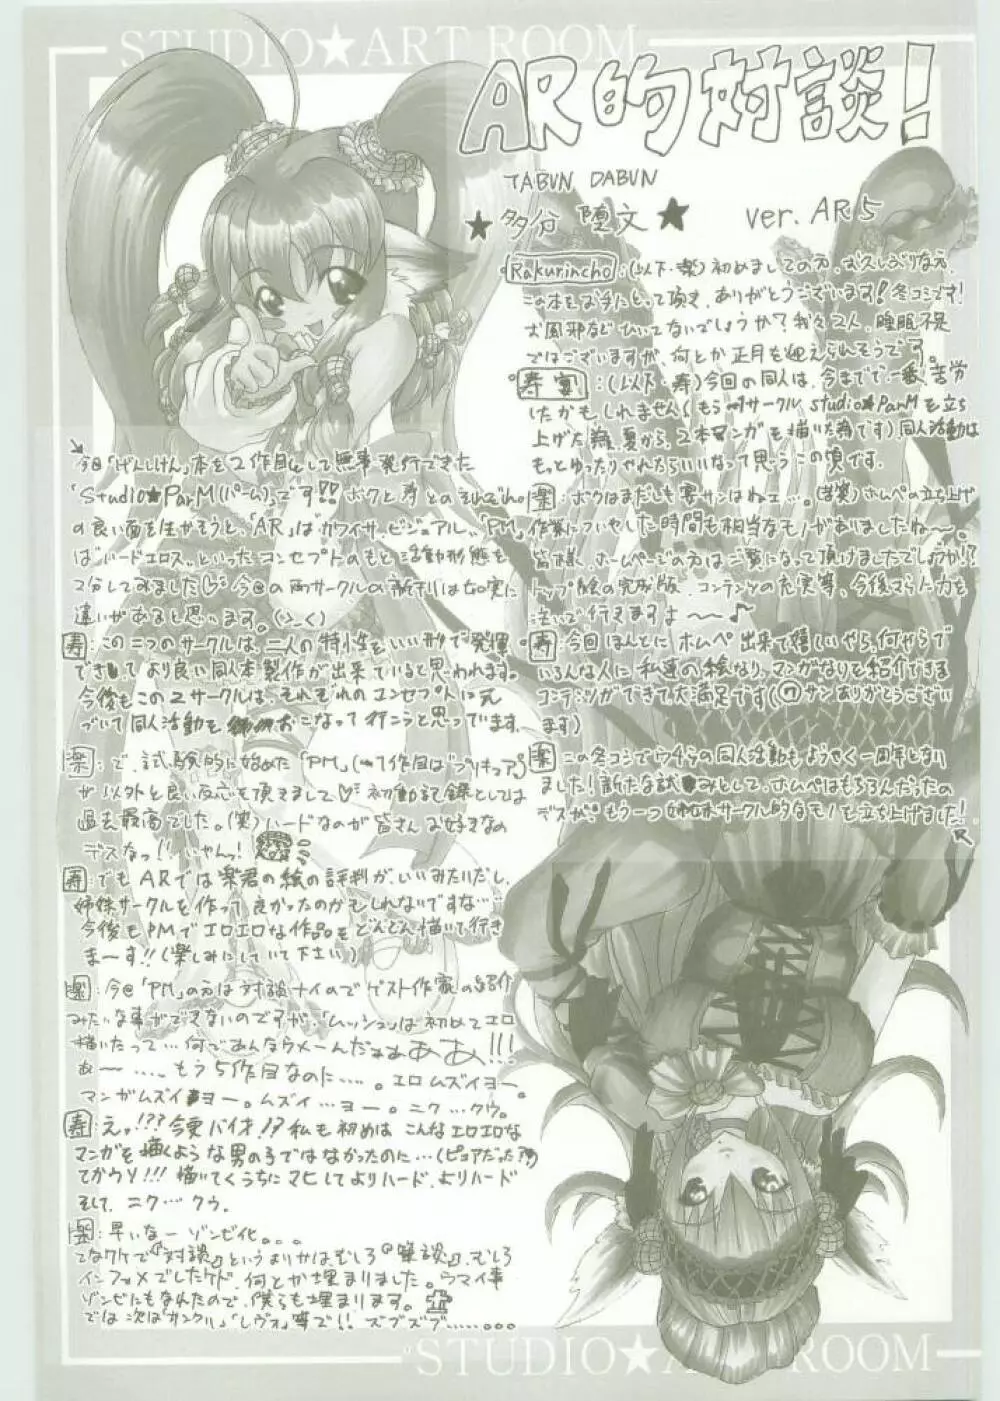 STUDIO★ART ROOM
AR的対談!
TABUN DABUN
★ 多分 堕文 ★ ver. AR5
Rakurincho:(以下・楽)初めましての方、お久しぶりな方、
この本をお手にとって頂き、ありがとうございます!冬コミです!
お風邪などひいてないでしょうか?我々2人、睡眠不足
ではございますが、何とか正月を迎えられそうです。
寿宴:(以下・寿)今回の同人は、今までで一番苦労
したかもしれません(もう一つサークル studio★ParMを立ち
上げた為、夏から、2本マンガを描いた為です)同人活動は
もっとゆったりやれたらいいなって思うこの頃です。
楽:ボクはまだしも寿サンはねェ…。(苦笑)ホムペの立ち上げ
作業についやした時間も相当なモノがありましたね〜
皆様、ホームページの方はご覧になって頂けましたでしょうか!?
トップ絵の完成版、コンテンツの充実等、今後さらに力を
注いで行きますよ〜〜♪
寿:今回ほんとにホムペ出来て嬉しいやら、何やらで
いろんな人に私達の絵なり、マンガなりを紹介できる
コンテンツができて大満足です(⑦サンありがとうござい
ます)
楽:この冬コミでウチらの同人活動もようやく一周年となり
ました!新たな試みとして、ホムペはもちろんだったの
デスが、もう一つ姉妹サークル的なモノを立ち上げました!
今回「げんしけん」本を2作目として無事発行できた
「Studio★ParM(パーム)」です!!ボクと寿とのそれぞれの
の良い面を生かそうと、「AR」は"カワイサ、ビジュアル"、"PM"
は"ハードエロス"といったコンセプトのもと活動形態を
2分してみました♡今回の両サークルの新刊は如実に
違いがあると思います。(>_<)
寿:この二つのサークルは、二人の特性をいい形で発揮
できてより良い同人本製作が出来ていると思われます。
今後もこの2サークルは、それぞれのコンセプトに元
づいて同人活動をおこなって行こうと思っています。
楽:で、試験的に始めた「PM」(1作目は"プリキュア")
が以外と良い反応を頂きまして♡初動記録としては
過去最高でした。(笑)ハードなのが皆さんお好きなの
デスなっ!!いやんっ!
寿:でもARでは楽君の絵の評判がいいみたいだし、
姉妹サークルを作って良かったのかもしれないですな…
今後もPMでエロエロな作品をどんどん描いて行き
ま〜す!!(楽しみにしていて下さい)
楽:今回「PM」の方は対談ナイのでゲスト作家の紹介
みたいな事ができないのですが、「ムッシュ」は初めてエロ
描いたって…何であんなウメーんだぁぁあああ!!!
あ〜……。もう5作目なのに……。エロムズイヨー
マンガムズイヨー。ムズイ…ヨー。ニク…クウ。
寿:えッ!??今更バイオ!?私も初めは こんなエロエロな
マンガを描くような男の子ではなかったのに…(ピュアだった?)
てかウソ!!!描いてくうちにマヒしてよりハード、よりハード
そして、ニク…クウ。
楽:早いなー ゾンビ化。。。
てなワケで『対談』というよりかはむしろ『雑談』、むしろ
インフォメでしたケド、何とか埋まりました。ウマイ事
ゾンビにもなれたので、僕らも埋まります。
では次は「サンクリ」「レヴォ」等で!!ズブズブ……。。。
STUDIO★ART ROOM